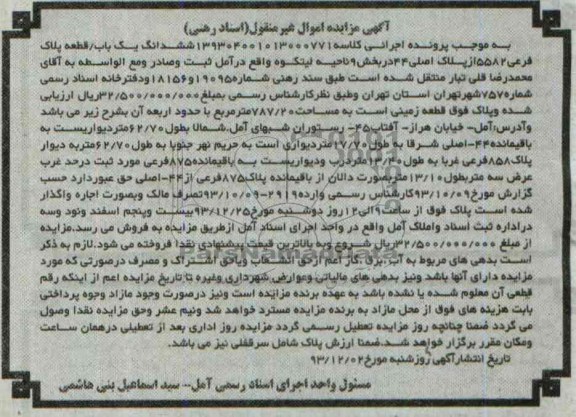 آگهی مزایده اموال غیرمنقول(اسناد رهنی)
به موجب پرونده اجرائی کلاسه139304001013000771ششدانگ یک باب/قطعه پلاک
فرعی5582ازپلاک اصلی44دربخش9ناحیه لیتکوه واقع درآمل ثبت وصادر ومع الواسطه به آقای
محمدرضا قلی تبار منتقل شده است طبق سند رهنی شماره19095و18156دفترخانه اسناد رسمی
شماره7570شهرتهران استان تهران وطبق نظرکارشناس رسمی بمبلغ32/500/000/000ریال ارزیابی
شده وپلاک فوق قطعه زمینی است به مساحت787/20مترمربع با حدود اربعه آن بشرح زیر می باشد
وآدرس:آمل- خیابان هراز- آفتاب25- رستوران شبهای آمل.شمالا بطول62/70متردیواریست به
باقیمانده44-اصلی شرقا به طول17/70متردیواری است به حریم نهر جنوبا به طول62/70متربه دیوار
پلاک858فرعی غربا به طول13/40متردرب ودیواریست به باقیمانده875فرعی مورد ثبت درحد غرب
عرض سه متربطول13/10متربصورت دالان از باقیمانده پلاک875فرعی از44-اصلی حق عبوردارد حسب
گزارش مورخ93/10/09کارشناس رسمی وارده29119-93/10/09تصرف مالک وبصورت اجاره واگذار
شده است پلاک فوق از ساعت9الی12روز دوشنبه مورخ93/12/25بیست وپنجم اسفند ونود وسه
دراداره ثبت اسناد واملاک آمل واقع در واحد اجرای اسناد آمل ازطریق مزایده به فروش می رسد.مزایده
از مبلغ 32/500/000/000ریال شروع وبه بالاترین قیمت پیشنهادی نقدا فروخته می شود.لازم به ذکر
است بدهی های مربوط به آب،برق،گاز اعم ازحق انشعاب ویاحق اشتراک و مصرف درصورتی که مورد
مزایده دارای آنها باشد ونیز بدهی های مالیاتی وعوارض شهرداری وغیره تا تاریخ مزایده اعم از اینکه رقم
قطعی آن معلوم شده یا نشده باشد به عهده برنده مزایده است ونیز درصورت وجود مازاد وجوه پرداختی
بابت هزینه های فوق از محل مازاد به برنده مزایده مسترد خواهد شد ونیم عشر وحق مزایده نقدا وصول
می گردد ضمنا چنانچه روز مزایده تعطیل رسمی گردد مزایده روز اداری بعد از تعطیلی درهمان ساعت
ومکان مقرر برگزار خواهد شد.ضمنا ارزش پلاک شامل سرقفلی نیز می باشد.
تاریخ انتشارآگهی روزشنبه مورخ93/12/02
مسئول واحد اجرای اسناد رسمی آمل-- سید اسماعیل بنی هاشمی